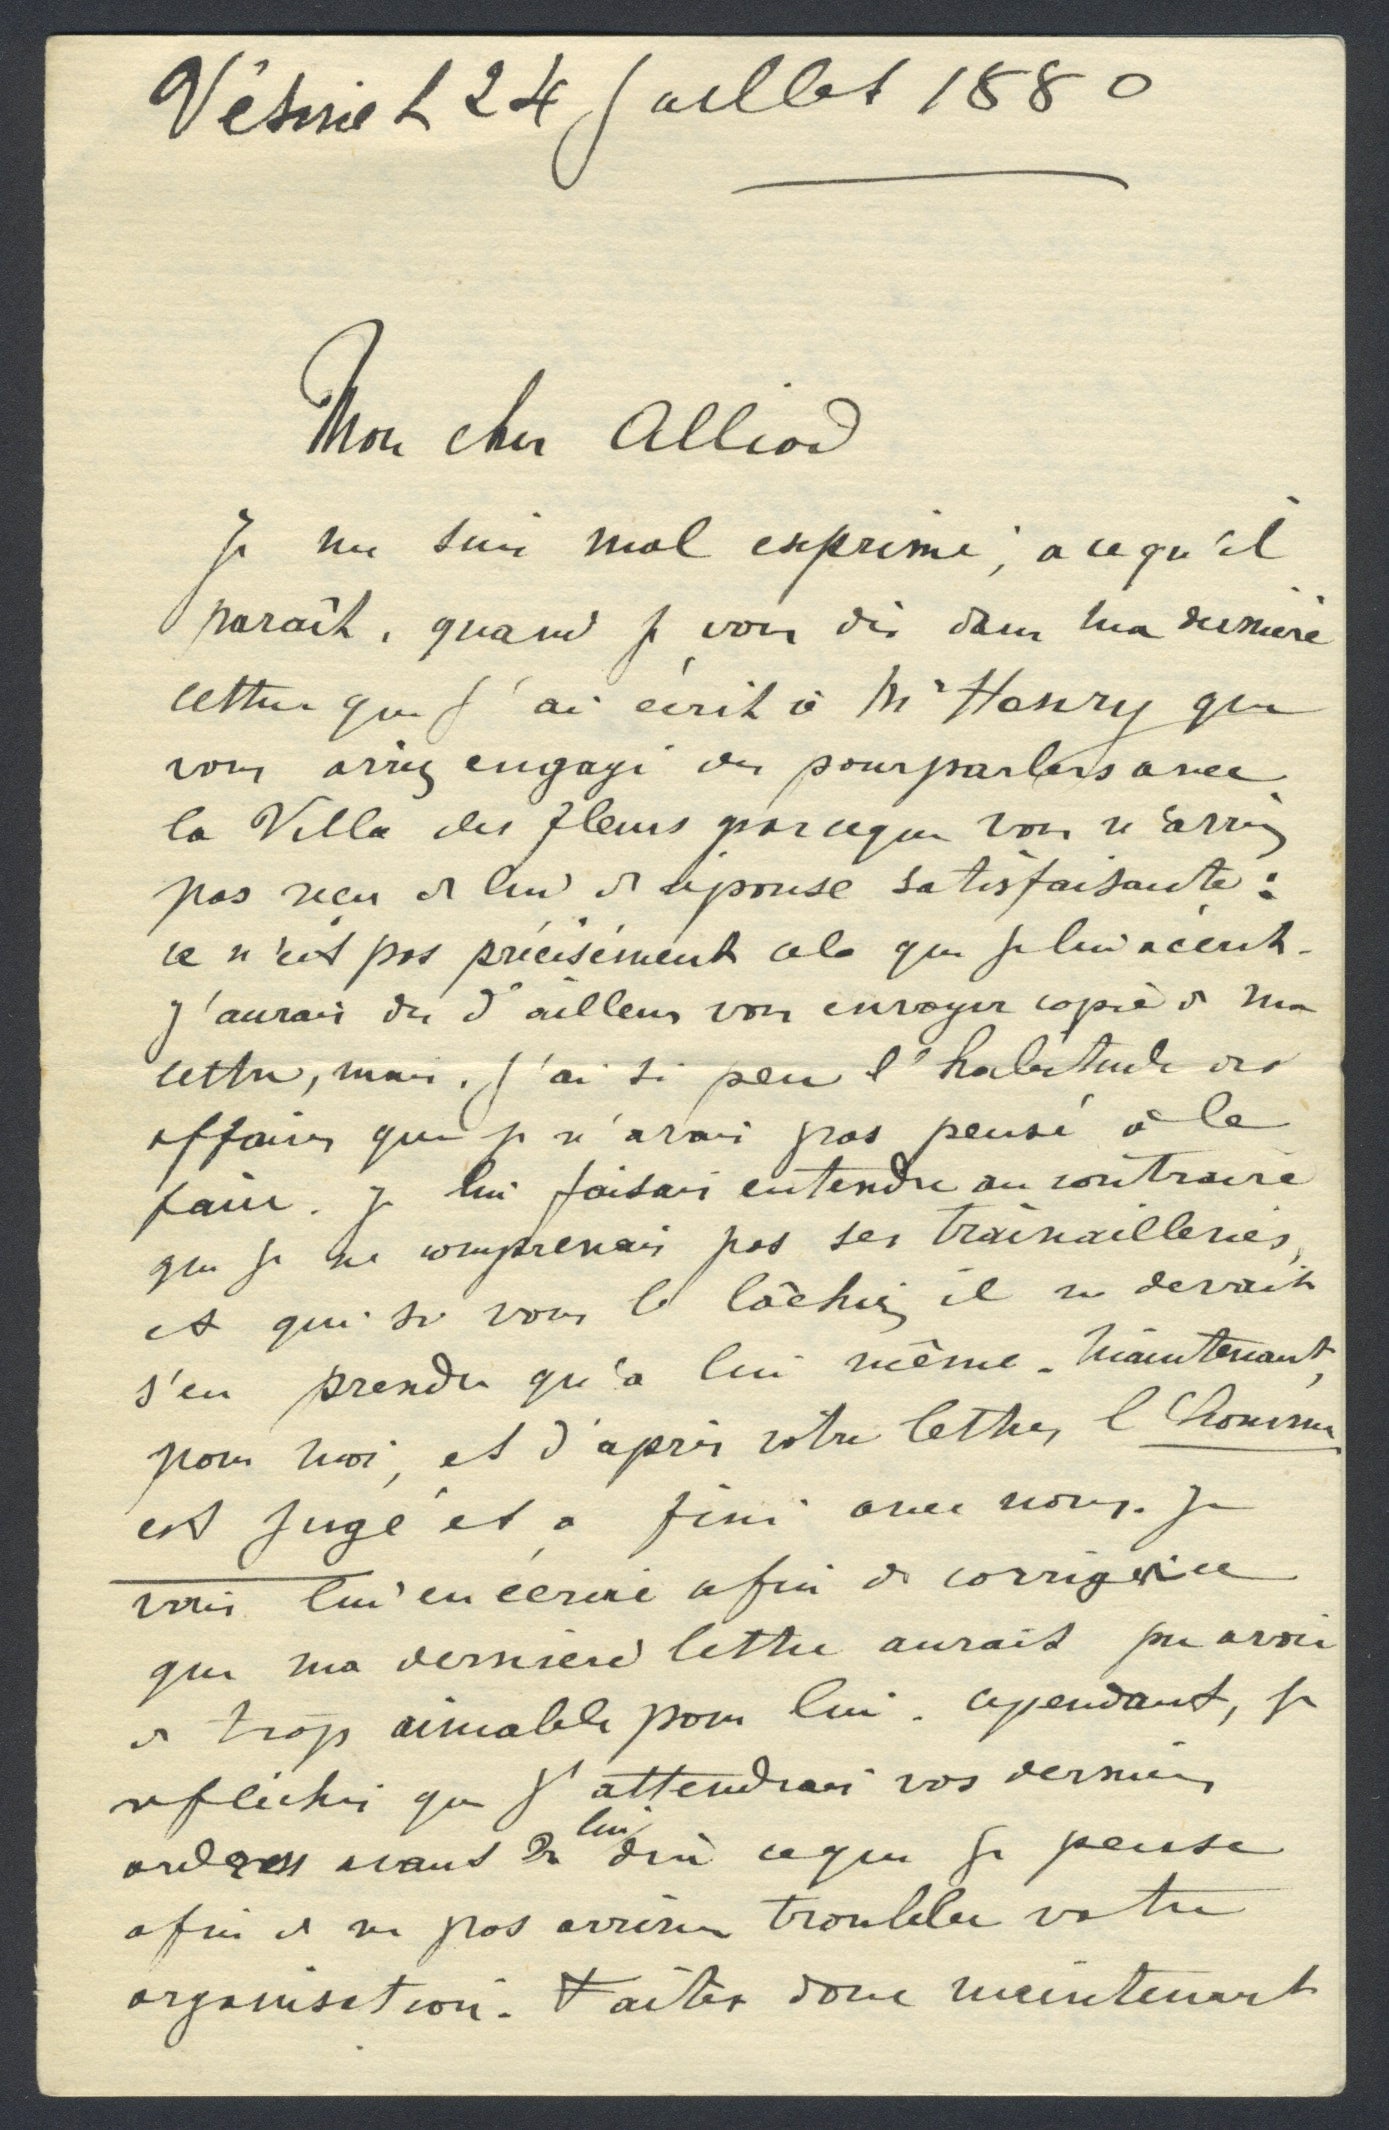 Vésinet 24 Juillet 1880
Mon cher Alliod
Je me suis mal exprimé, a ce qu'il
paraît, quand je vous dis dans ma dernière
lettre que j'ai écrit à Mr Henry que
vous aviez engagé des pourparlers avec
la Villa des fleurs parceque vous n'aviez
pas reçu de lui de réponse satisfaisante :
ce n'est pas précisément cela que je lui ai écrit.
J'aurais du d'ailleurs vous envoyer copie de ma
lettre, mais j'ai si peu l'habitude des
affaires que je n'avais pas pensé à le
faire. Je lui faisais entendre au contraire
que je ne comprenais pas ses traînailleries,
et que si vous le lâchiez il ne devait
s'en prendre qu'a lui même. Maintenant,
pour moi, et d'après votre lettre, l'homme
est jugé et a fini avec nous. Je
vais lui en écrire afin de corriger ce
que ma dernière lettre aurait pu avoir
de trop aimable pour lui. cependant, je
réfléchis que j'attendrai vos derniers
ordres avant de lui dire ce que je pense
afin de ne pas arriver troubler votre
organisation. Faites donc maintenant